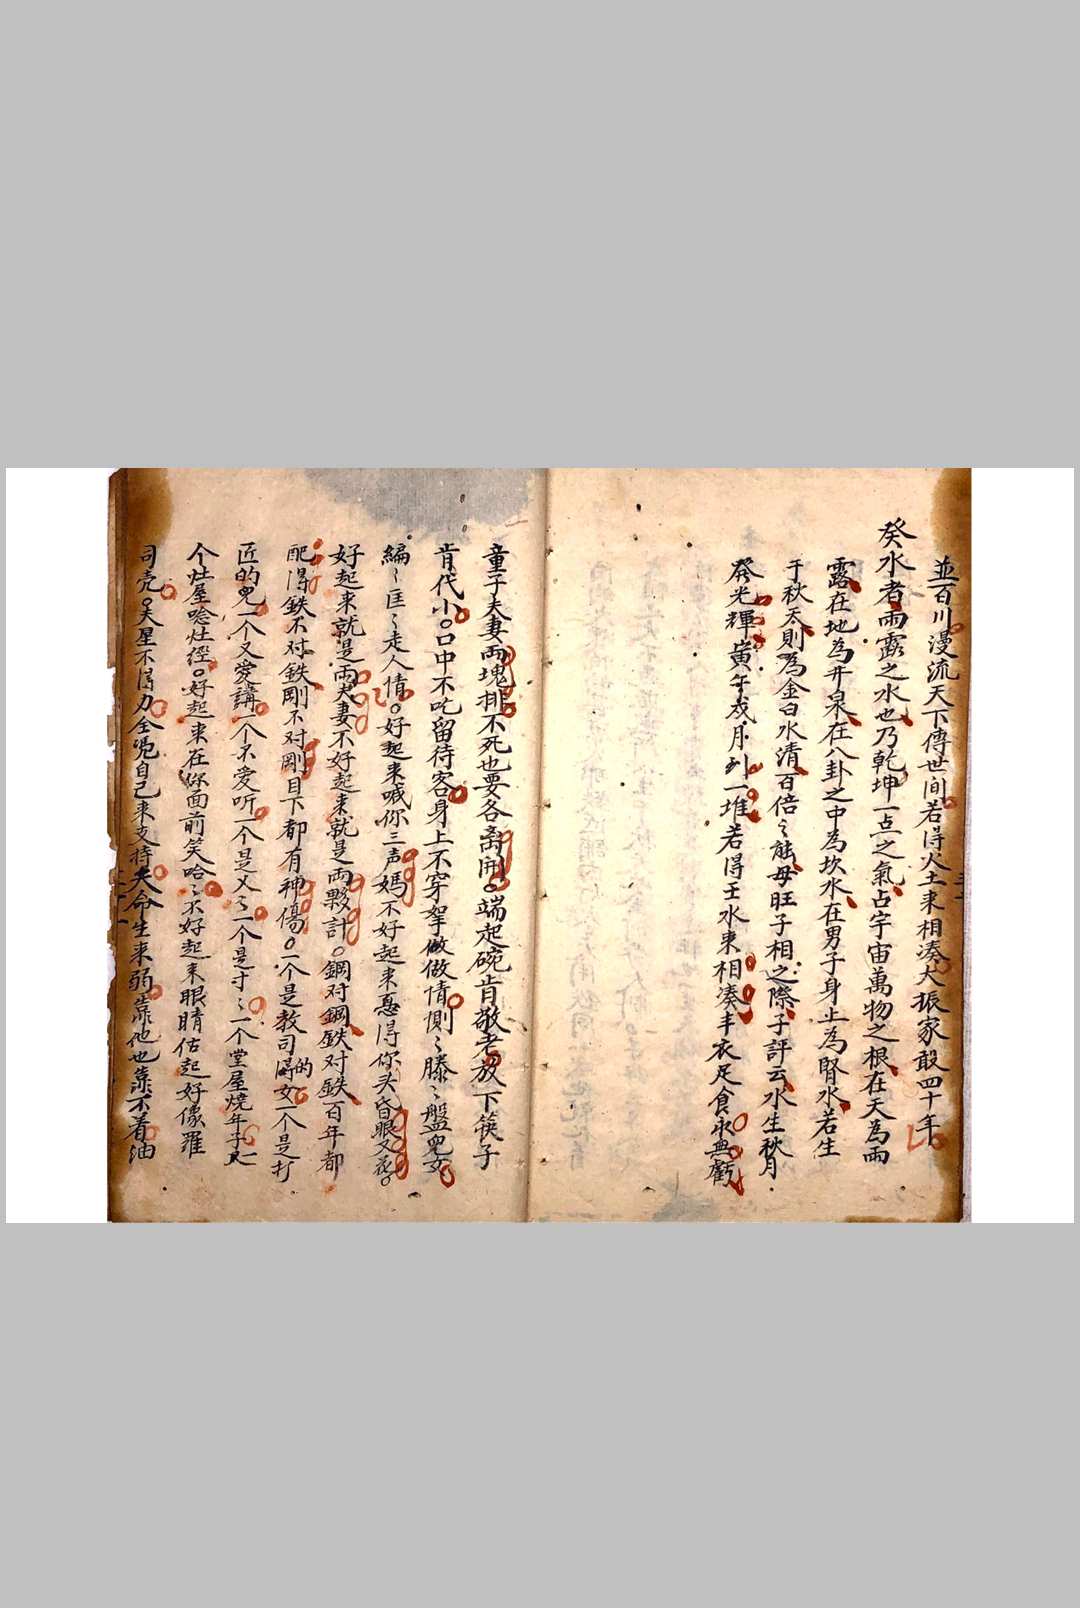 並百川漫流天下傳世间若得火土来相凑大振家敢四十年
癸水者雨露之水也乃乾坤一点之氣占宇宙萬物之根在天為雨
露在地為井泉在八卦之中為坎水在男子身上為腎水若生
于秋天則為金白水清百倍〻能母旺子相之際子評云水生秋月
癸光輝寅午戌月列一堆若得壬水来相凑丰衣足食永無虧
童子夫妻両塊排不死也要各离開。端起碗肯敬老放下筷子
肯代小。口中不吃留待客身上不穿拏做做情惻〻滕〻盤兒女
編〻匡〻走人情。好起来喊你三声媽不好起来惪得你头昏眼又花。
好起来就是両夫妻不好起来就是両夥計。鋼对鋼鉄对鉄百年都
配得鉄不对鉄剛不对剛目下都有神傷。一个是教司得的女一个是打
匠的兒一个又爱講一个不爱听一个是乂〻一个是寸〻一个堂屋燒年子
个灶屋唸灶經。好起来在你面前笑哈〻不好起来眼睛估起好像羅
司壳。夫星不得力全凴自己来支持夫命生来弱靠他也靠不着油